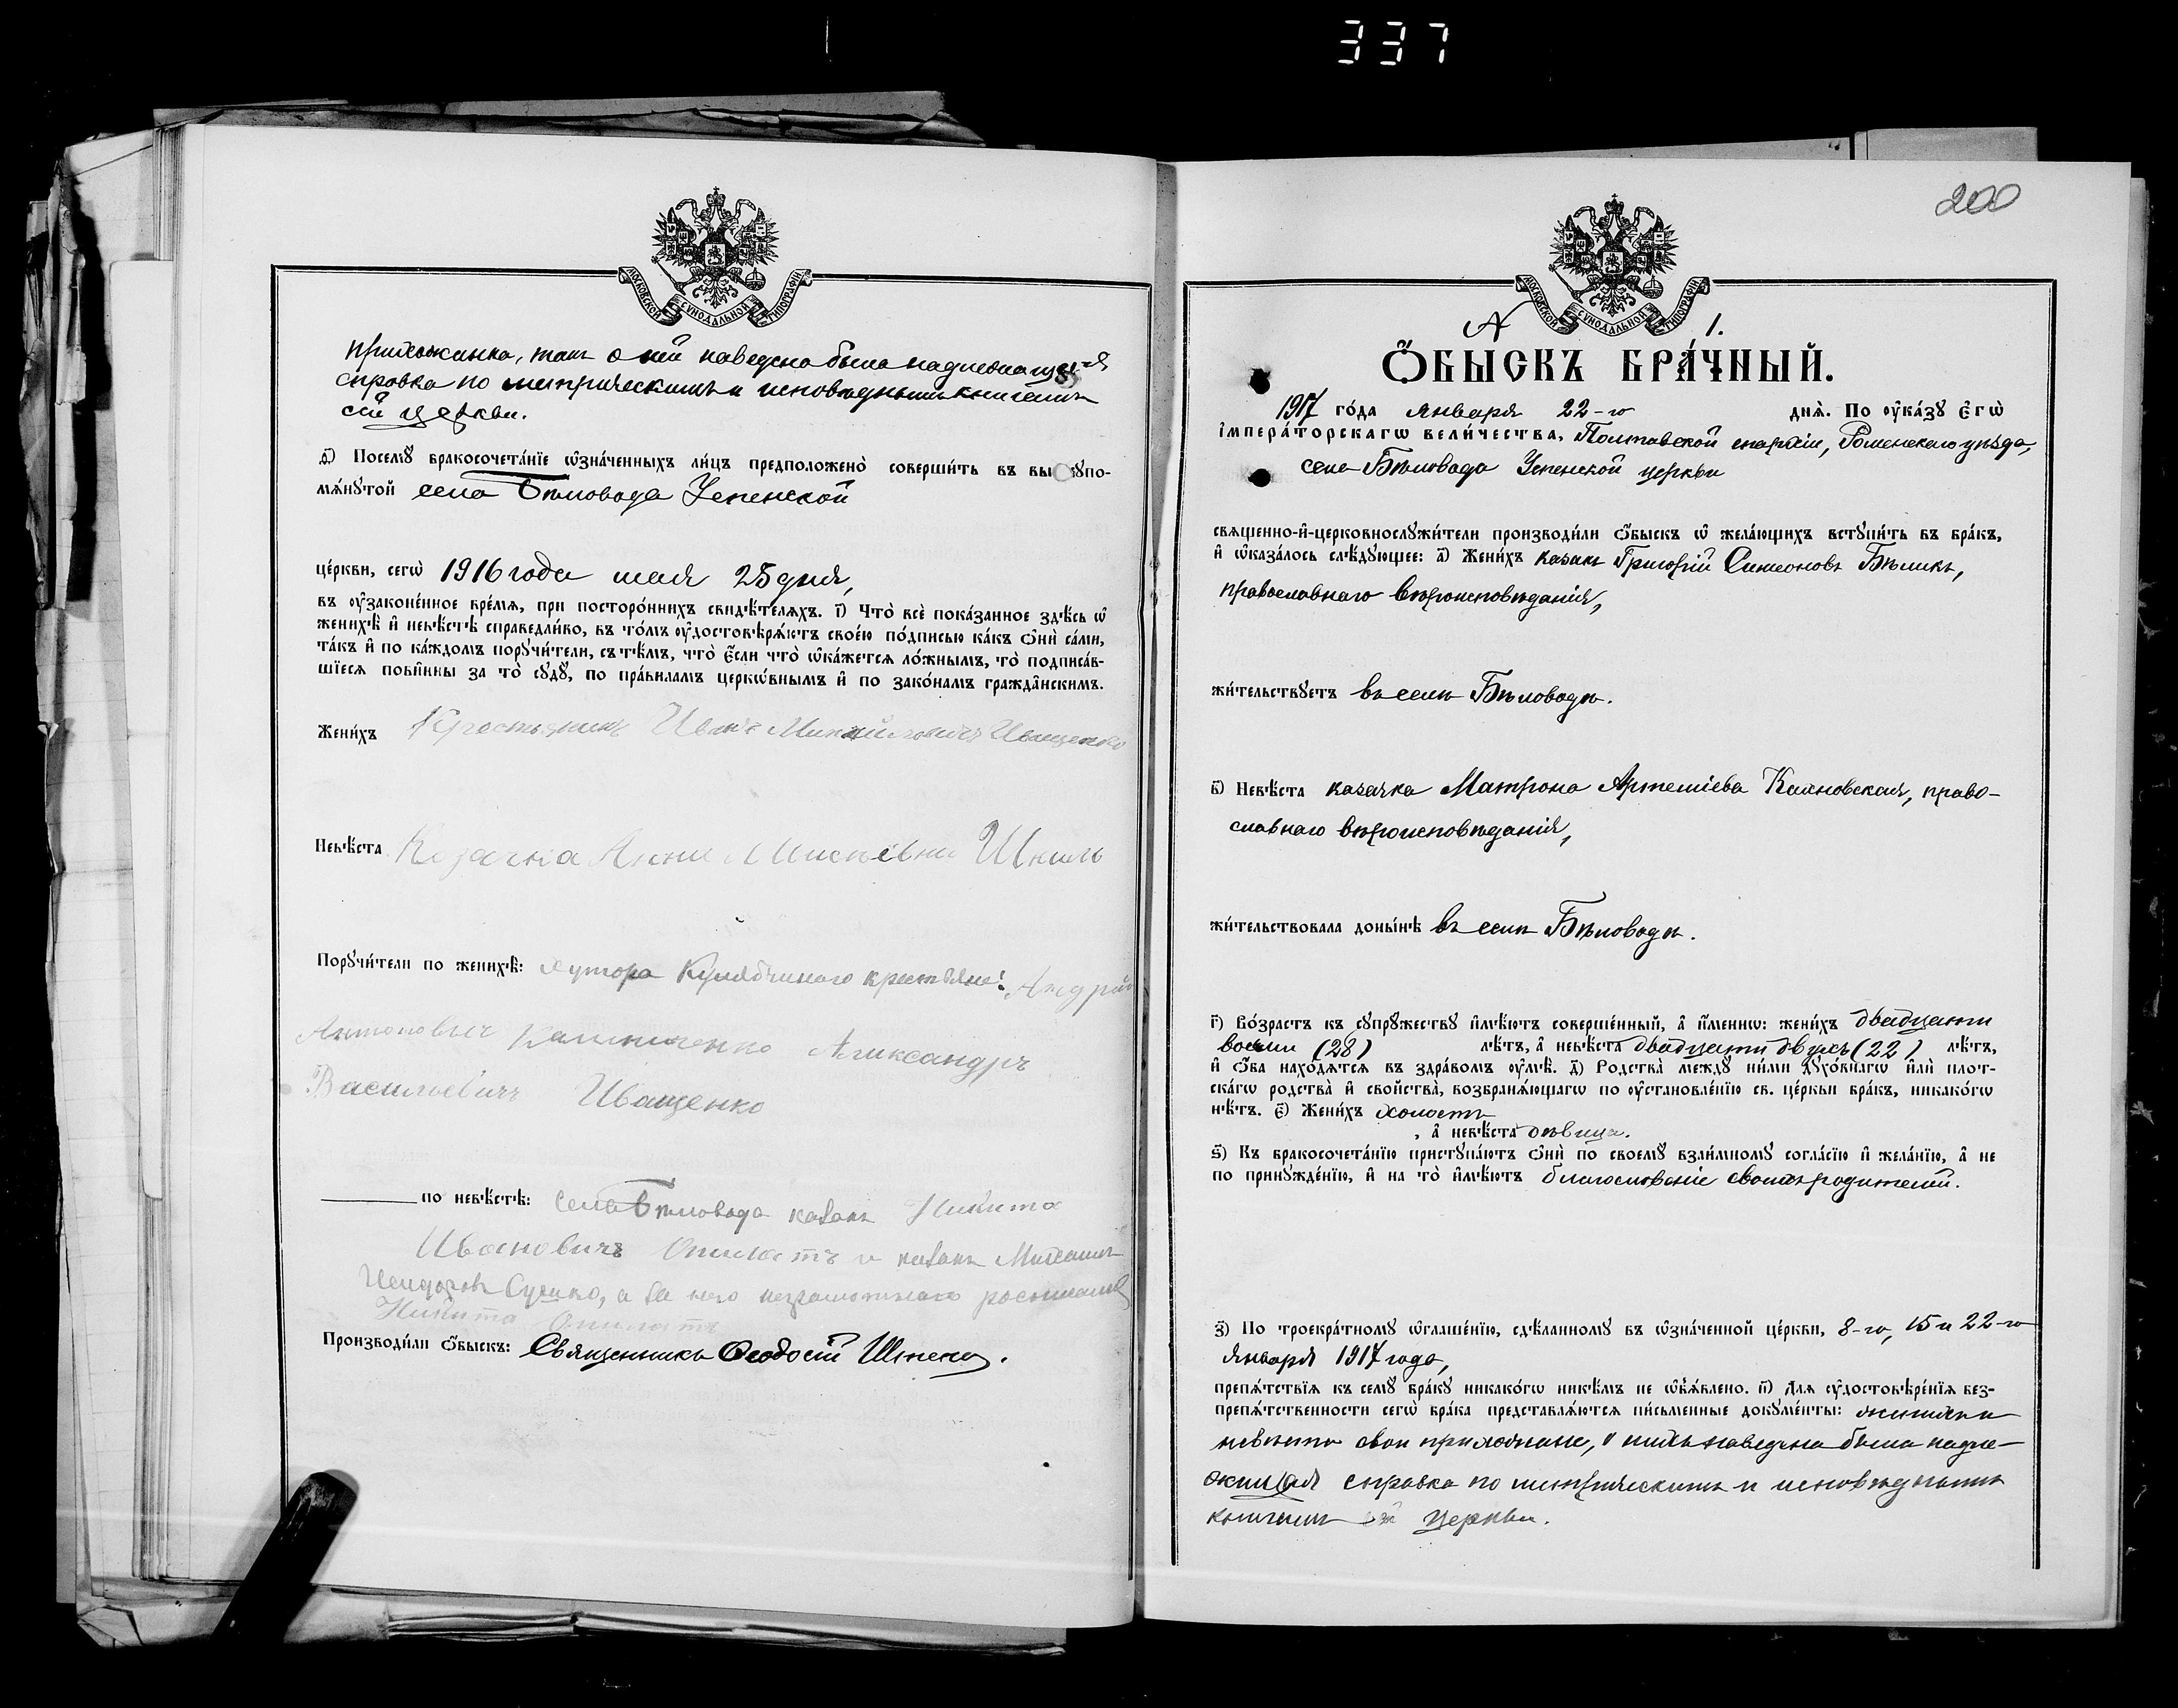 337
МОСКОВСКОЙ СѴНОДАЛЬНОЙ ТИПОГРАФІИ
прихожанка, такъ о ней наведена была надлежащая
справка по метрическимъ и исповѣднымъ книгамъ
сей церкви.
ѳ҃) Посемꙋ̀ бракосочета́нїе ѡ҆зна́ченныхъ ли́цъ предположено̀ соверши́ть въ вы ꙋпо-
мѧ́нꙋтой села Бѣловода Успенской
це́ркви, сегѡ̀ 1916 года мая 25 дня,
въ ᲂу҆зако́ненное вре́мѧ, при посторо́ннихъ свидѣ́телѧхъ. і҃) Что̀ всѐ пока́занное здѣ́сь ѡ҆
женихѣ̀ и҆ невѣ́стѣ справедли́во, въ то́мъ ᲂу҆достовѣрѧ́ютъ свое́ю по́дписью ка́къ ѻ҆нѝ са́ми,
та́къ и҆ по ка́ждомъ порꙋчи́тели, съ тѣ́мъ, что̀ є҆́сли что̀ ѡ҆ка́жетсѧ ло́жнымъ, то̀ подписа́в-
шїесѧ пови́нны за то̀ сꙋдꙋ̀, по пра́виламъ церкѡ́внымъ и҆ по зако́намъ гражда́нскимъ.
Жени́хъ Крестьянинъ Иванъ Михайловичъ Иващенко
Невѣ́ста Козачка Анна Моисѣевна Шкиль
Порꙋчи́тели по женихѣ̀: хутора Кулябчиного крестьяне: Андрій
Антоновичъ Калиниченко Александръ
Васильевичъ Иващенко
по невѣ́стѣ: села Бѣловода казакъ Никита
Ивановичъ Опилатъ и казакъ Михаилъ
Исидоровъ, а за него неграмотнаго росписался
Никита Опилатъ
Производи́ли ѻ҆́быскъ: Священникъ Ѳеодосій
200
МОСКОВСКОЙ СѴНОДАЛЬНОЙ ТИПОГРАФІИ
1.
Ѻ҆́БЫСКЪ БРА́ЧНЫЙ.
1917 го́да января 22-го днѧ̀. По ᲂу҆ка́зꙋ Є҆гѡ̀
і҆мпера́торскагѡ вели́чества, Полтавской епархіи, Роменскаго уѣзда,
села Бѣловода Успенской церкви
свѧще́нно-и҆-церковнослꙋжи́тели производи́ли ѻ҆́быскъ ѡ҆ жела́ющихъ встꙋпи́ть въ бра́къ,
и҆ ѡ҆каза́лось слѣ́дꙋющее: а҃) Жени́хъ казакъ Григорій Симеоновъ Бѣликъ,
православнаго вѣроисповѣданія,
жи́тельствꙋетъ въ селѣ Бѣловодѣ.
в҃) Невѣ́ста казачка Матрона Артеміева Каяновская, право-
славнаго вѣроисповѣданія,
жи́тельствовала доны́нѣ въ селѣ Бѣловодѣ.
г҃) Во́зрастъ къ сꙋпрꙋ́жествꙋ и҆мѣ́ютъ соверше́нный, а҆ и҆́меннѡ: жени́хъ двадцати
восьми (28) лѣ́тъ, а҆ невѣ́ста двадцати двухъ (22) лѣ́тъ,
и҆ ѻ҆́ба нахо́дѧтсѧ въ здра́вомъ ᲂу҆мѣ̀. д҃) Родства̀ междꙋ̀ ни́ми дꙋхо́внагѡ и҆лѝ плот-
ска́гѡ родства̀ и҆ свойства̀, возбранѧ́ющагѡ по ᲂу҆становле́нїю св. це́ркви бра́къ, никако́гѡ
нѣ́тъ. є҃) Жени́хъ холостъ
, а҆ невѣ́ста дѣвица.
ѕ҃) Къ бракосочета́нїю пристꙋпа́ютъ ѻ҆нѝ по своемꙋ̀ взаи́мномꙋ согла́сїю и҆ жела́нїю, а҆ не
по принꙋжде́нїю, и҆ на то̀ и҆мѣ́ютъ благословеніе своихъ родителей.
з҃) По троекра́тномꙋ ѡ҆глаше́нїю, сдѣ́ланномꙋ въ ѡ҆зна́ченной це́ркви, 8-го, 15 и 22-го
января 1917 года,
препѧ́тствїѧ къ семꙋ̀ бра́кꙋ никако́гѡ никѣ́мъ не ѡ҆б̾ѧ́влено. и҃) Длѧ ᲂу҆достовѣре́нїѧ без-
препѧ́тственности сегѡ̀ бра́ка представлѧ́ютсѧ пи́сьменные докꙋме́нты: женихъ и
невѣста свои прихожане, о нихъ наведена была надле-
жащая справка по метрическимъ и исповѣднымъ
книгамъ сей церкви.